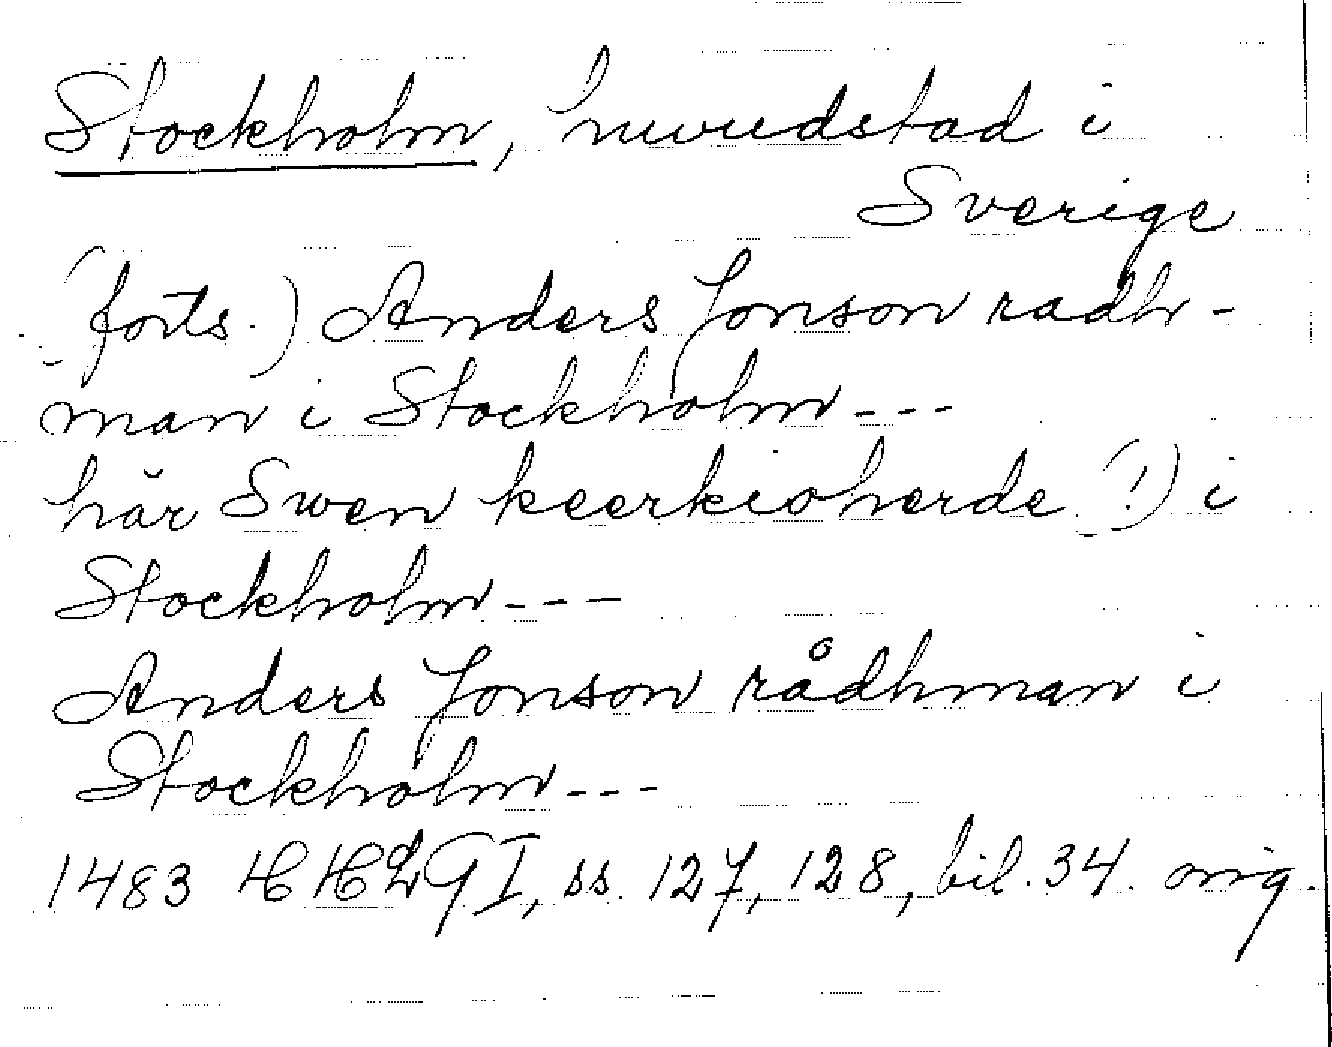 Stockholm, huvudstad i
Sverige
(forts.) Anders Jonson radh-
man i Stockholm---
här Swen keerkioherde (!) i
Stockholm---
Anders Jonson rådhman i
Stockholm---
1483 HHLG I, ss. 127, 128, bil. 34. orig.